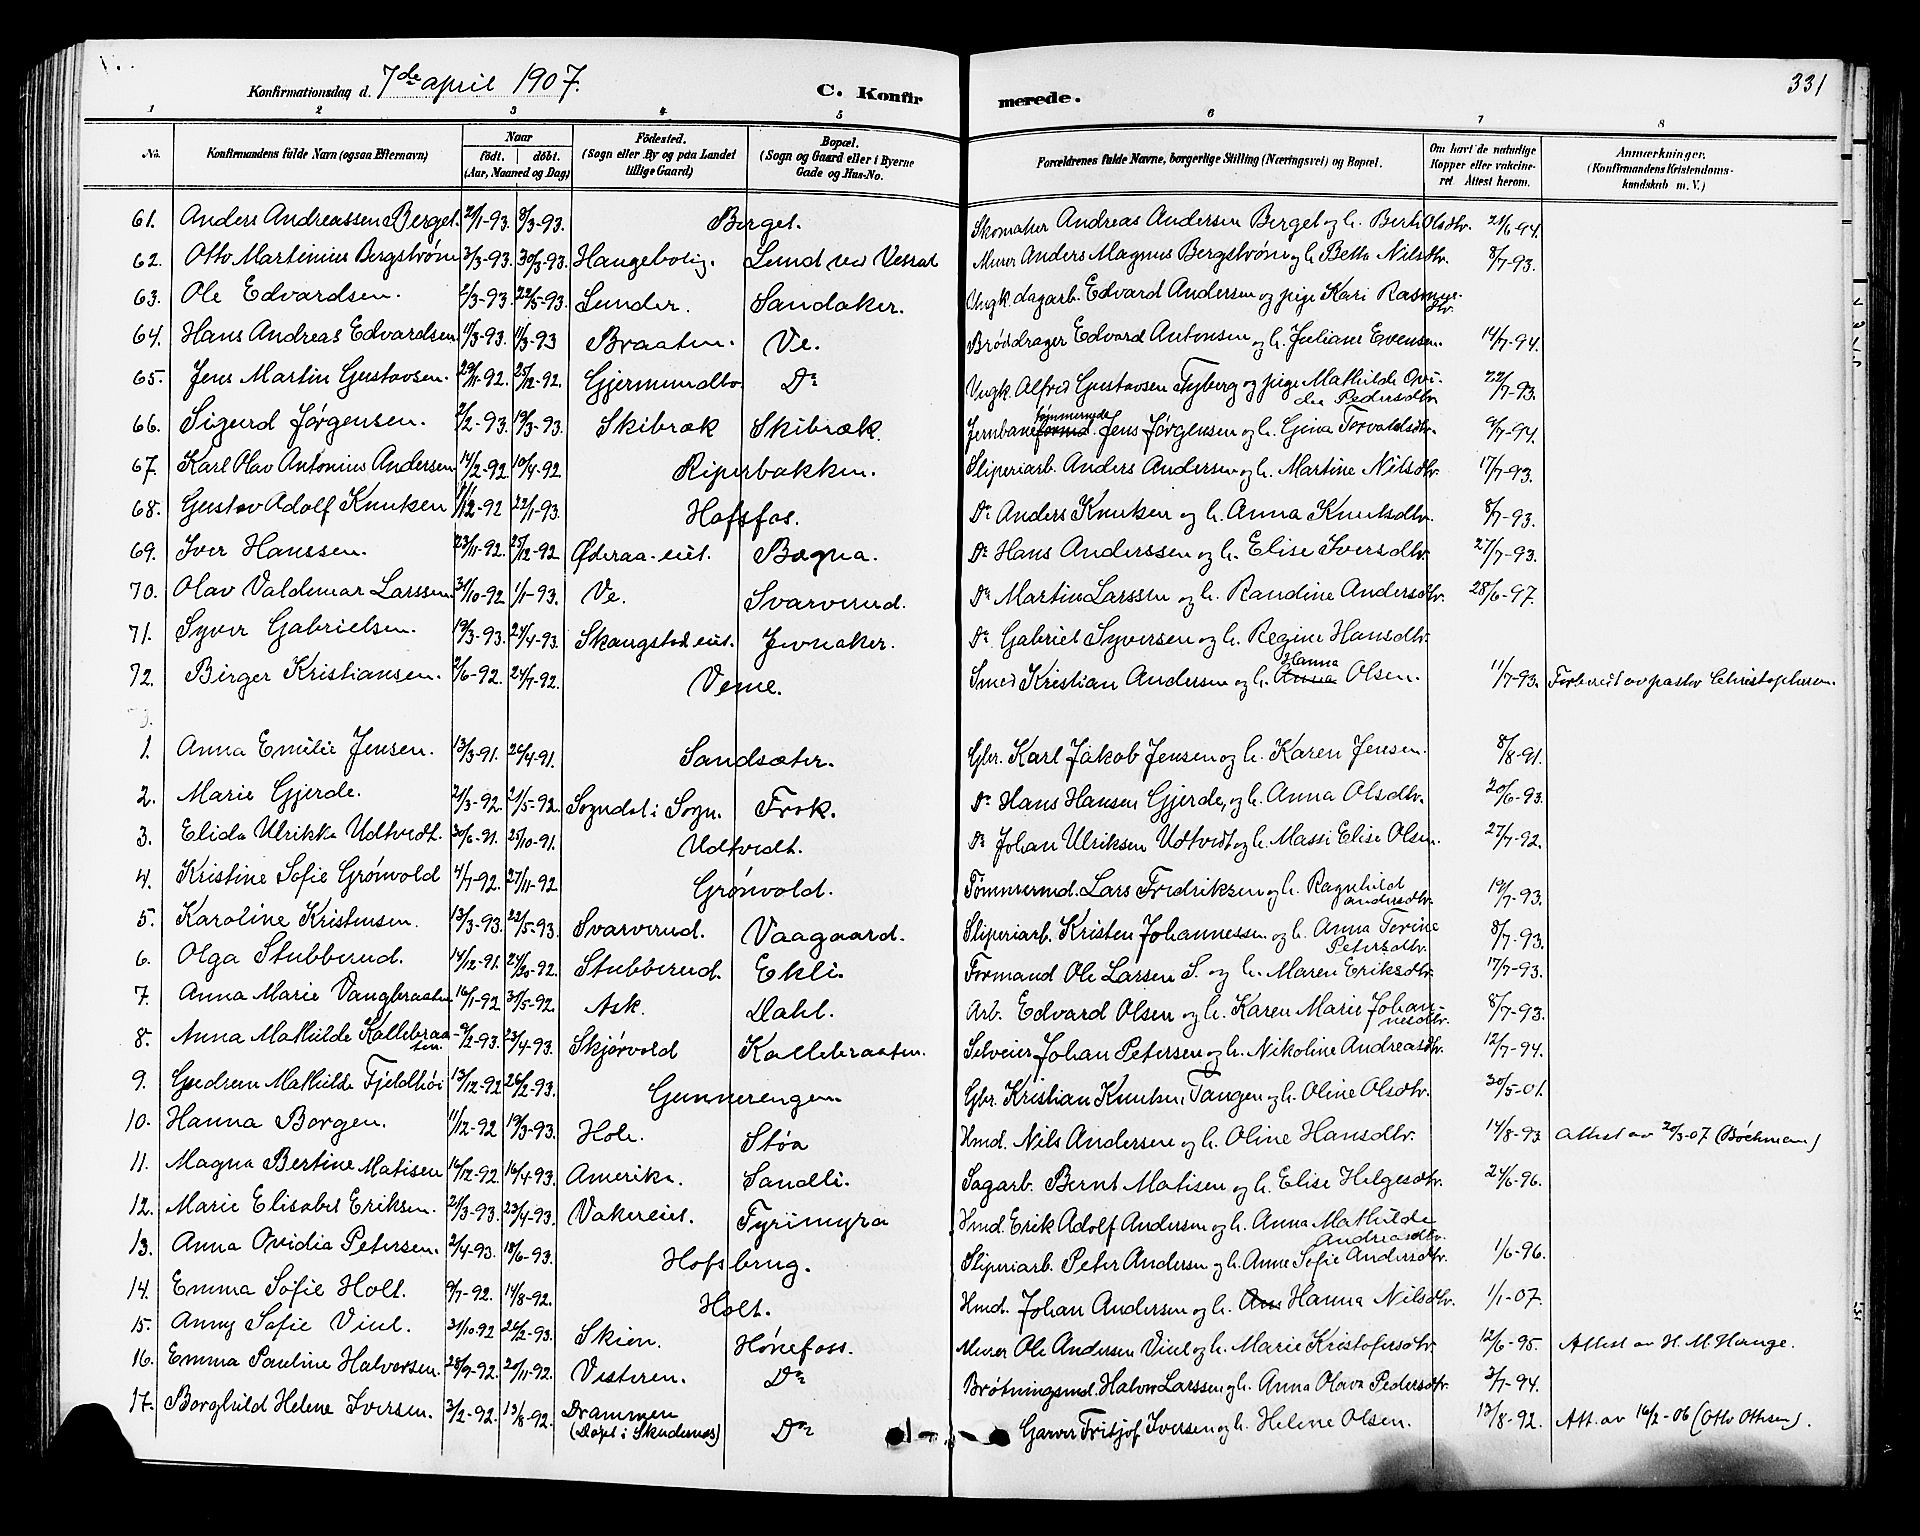 331
Konfirmationsdag d. 7de april 1907. C. Konfirmerede.
1 2 3 4 5 6 7 8
No. Konfirmandens fulde Navn (ogsaa Efternavn) Naar födt. döbt. (Aar, Maaned og Dag) Födested. (Sogn eller By og paa Landet tillige Gaard) Bopæl. (Sogn og Gaard eller i Byerne Gade og Hus-No. Forældrenes fulde Navne, borgerlige Stilling (Næringsvei) og Bopæl. Om havt de naturlige Kopper eller vakcineret Attest herom. Anmærkninger. (Konfirmandens Kristendomskundskab m. V.)
61. Anders Andreassen Berget. 8/3-93. Berget. Skomaker Andreas Andersen Berget og h. Berte Olsdtr. 21/6-94.
62. Otto Martinius Bergstrøm 3/3-93. 30/3-93. Haugebolig. Lund ved Vessat Murer Anders Magnus Bergstrøm og h. Betta Nilsdtr. 8/7-93.
63. Ole Edvardsen. 2/3-93. 22/5-93. Lunder. Sandaker. Ungk. dagarb. Edvard Andersen og pige Kari Rasmusdtr.
64. Hans Andreas Edvardsen 11/3-93. 11/3-93 Braaten. Ve. Brøddrager Edvard Antonsen og h. Juliane Evensen. 14/7-94.
65. Jens Martin Gustavsen. 29/11-92. 25/12-92. Gjermundbo Do Ungk. Alfred Gustavsen Fyberg og pige Mathilde Ovidia Pedersdtr. 22/7-93.
66. Sigurd Jørgensen. 2/2-93. 19/3-93. Skibræk Skibræk. Jernbanetømmermd. Jens Jørgensen og h. Gina Torvaldsdtr. 9/7-94.
67. Karl Olav Antonius Andersen 14/2-92. 10/4-92. Riperbakken. Sliperiarb. Anders Andersen og h. Martine Nilsdtr. 17/7-93.
68. Gustav Adolf Knutsen 11/12-92 22/1-93. Hofsfos. Do Anders Knutsen og h. Anna Knutsdtr. 8/7-93.
69. Iver Hanssen. 23/11-92. 25/12-92 Øderaa-eiet. Bægna. Do Hans Anderssen og h. Elise Iversdtr. 27/7-93.
70. Olav Valdemar Larssen. 31/10-92 1/1-93. Ve. Svarverud. Do Martin Larssen og h. Randine Andersdtr. 28/6-97.
71. Syver Gabrielsen. 19/3-93. 24/4-93. Skaugstad eiet. Jevnaker. Do Gabriel Syversen og h. Regine Hansdtr.
72. Birger Kristiansen. 2/6-92. 24/7-92. Veme. Smed Kristian Andersen og h. Hanna Olsen. 11/7-93. Forberedt av pastor Christophersen
1. Anna Emilie Jensen. 13/3-91. 26/4-91. Sandsæter. Gbr. Karl Jakob Jensen og h. Karen Jensen. 8/8-91.
2. Marie Gjerde. 21/3-92. 21/5-92. Sogndal i Sogn. Frok. Do Hans Hansen Gjerde, og h. Anna Olsdtr. 20/6-93.
3. Elida Ulrikke Udtvedt. 30/6-91. 25/10-91. Udtvedt. Do Johan Ulriksen Udtvedt og h. Massi Elise Olsen. 27/7-92.
4. Kristine Sofie Grönvold 4/7-92. 27/11-92 Grönvold. Tømmermd. Lars Fredriksen og h. Ragnhild Andersdtr. 19/7-93.
5. Karoline Kristensen. 13/3-93. 22/5-93. Svarverud. Vaagaard. Sliperiarb. Kristen Johannessen og h. Anna Torine Petersdtr. 8/7-93.
6. Olga Stubberud. 14/12-91. Stubberud. Ekli. Formand Ole Larsen S. og h. Maren Eriksdtr. 17/7-93.
7. Anna Marie Vangbraaten 16/1-92 31/5-92. Ask. Dahl. Arb. Edvard Olsen og h. Karen Marie Johannesdtr. 8/7-93.
8. Anna Mathilde Kollebraaten. 9/2-93. 23/4-93. Skjørvold Kollebraaten. Selveier Johan Petersen og h. Nikoline Andreasdtr. 12/7-94.
9. Gudrun Mathilde Fjeldhøi 13/12-92 26/2-93. Gunnerengen Gbr. Kristian Knutsen Tangen og h. Oline Olsdtr. 30/5-01.
10. Hanna Borgen. 11/12-92 19/3-93. Hole. Støa Hmd. Nils Andersen og h. Oline Hansdtr. 14/8-93 Attest av 20/3-07 (Böckman)
11. Magna Bertine Matisen 16/12-92. 16/4-93. Amerika. Sandli. Sagarb. Bernt Matisen og h. Elise Helgesdtr. 24/6-96.
12. Marie Elisabet Eriksen. 21/3-93. 23/4-93. Vakereiet. Tyrimyra Hmd. Erik Adolf Andersen og h. Anna Mathilde Andreasdtr.
13. Anna Ovidia Petersen. 2/4-93. 18/6-93. Hofsbrug. Sliperiarb. Peter Andersen og h. Anne Sofie Andersdtr. 1/6-96.
14. Emma Sofie Holt. 9/7-92. 14/8-92. Holt. Hmd. Johan Andersen og h. Hanna Nilsdtr. 1/1-07.
15. Anny Sofie Viul. 31/10-92 26/2-93. Skien. Hönefoss. Murer Ole Andersen Viul og h. Marie Kristofersdtr. 12/6-95. Attest av H. M. Hauge.
16. Emma Pauline Halvorsen. 28/9-92. 20/11-92. Vesteren. Do Brøtningsmd. Halvor Larssen og h. Anna Olava Pedersdtr. 3/7-94.
17. Borghild Helene Iversen. 3/2-92. 13/8-92. Drammen (Døpt i Skudesnæs) Do Garver Fritjof Iversen og h. Helene Olsen. 13/8-92. Att. av 16/2-06 (Otto Othsen).